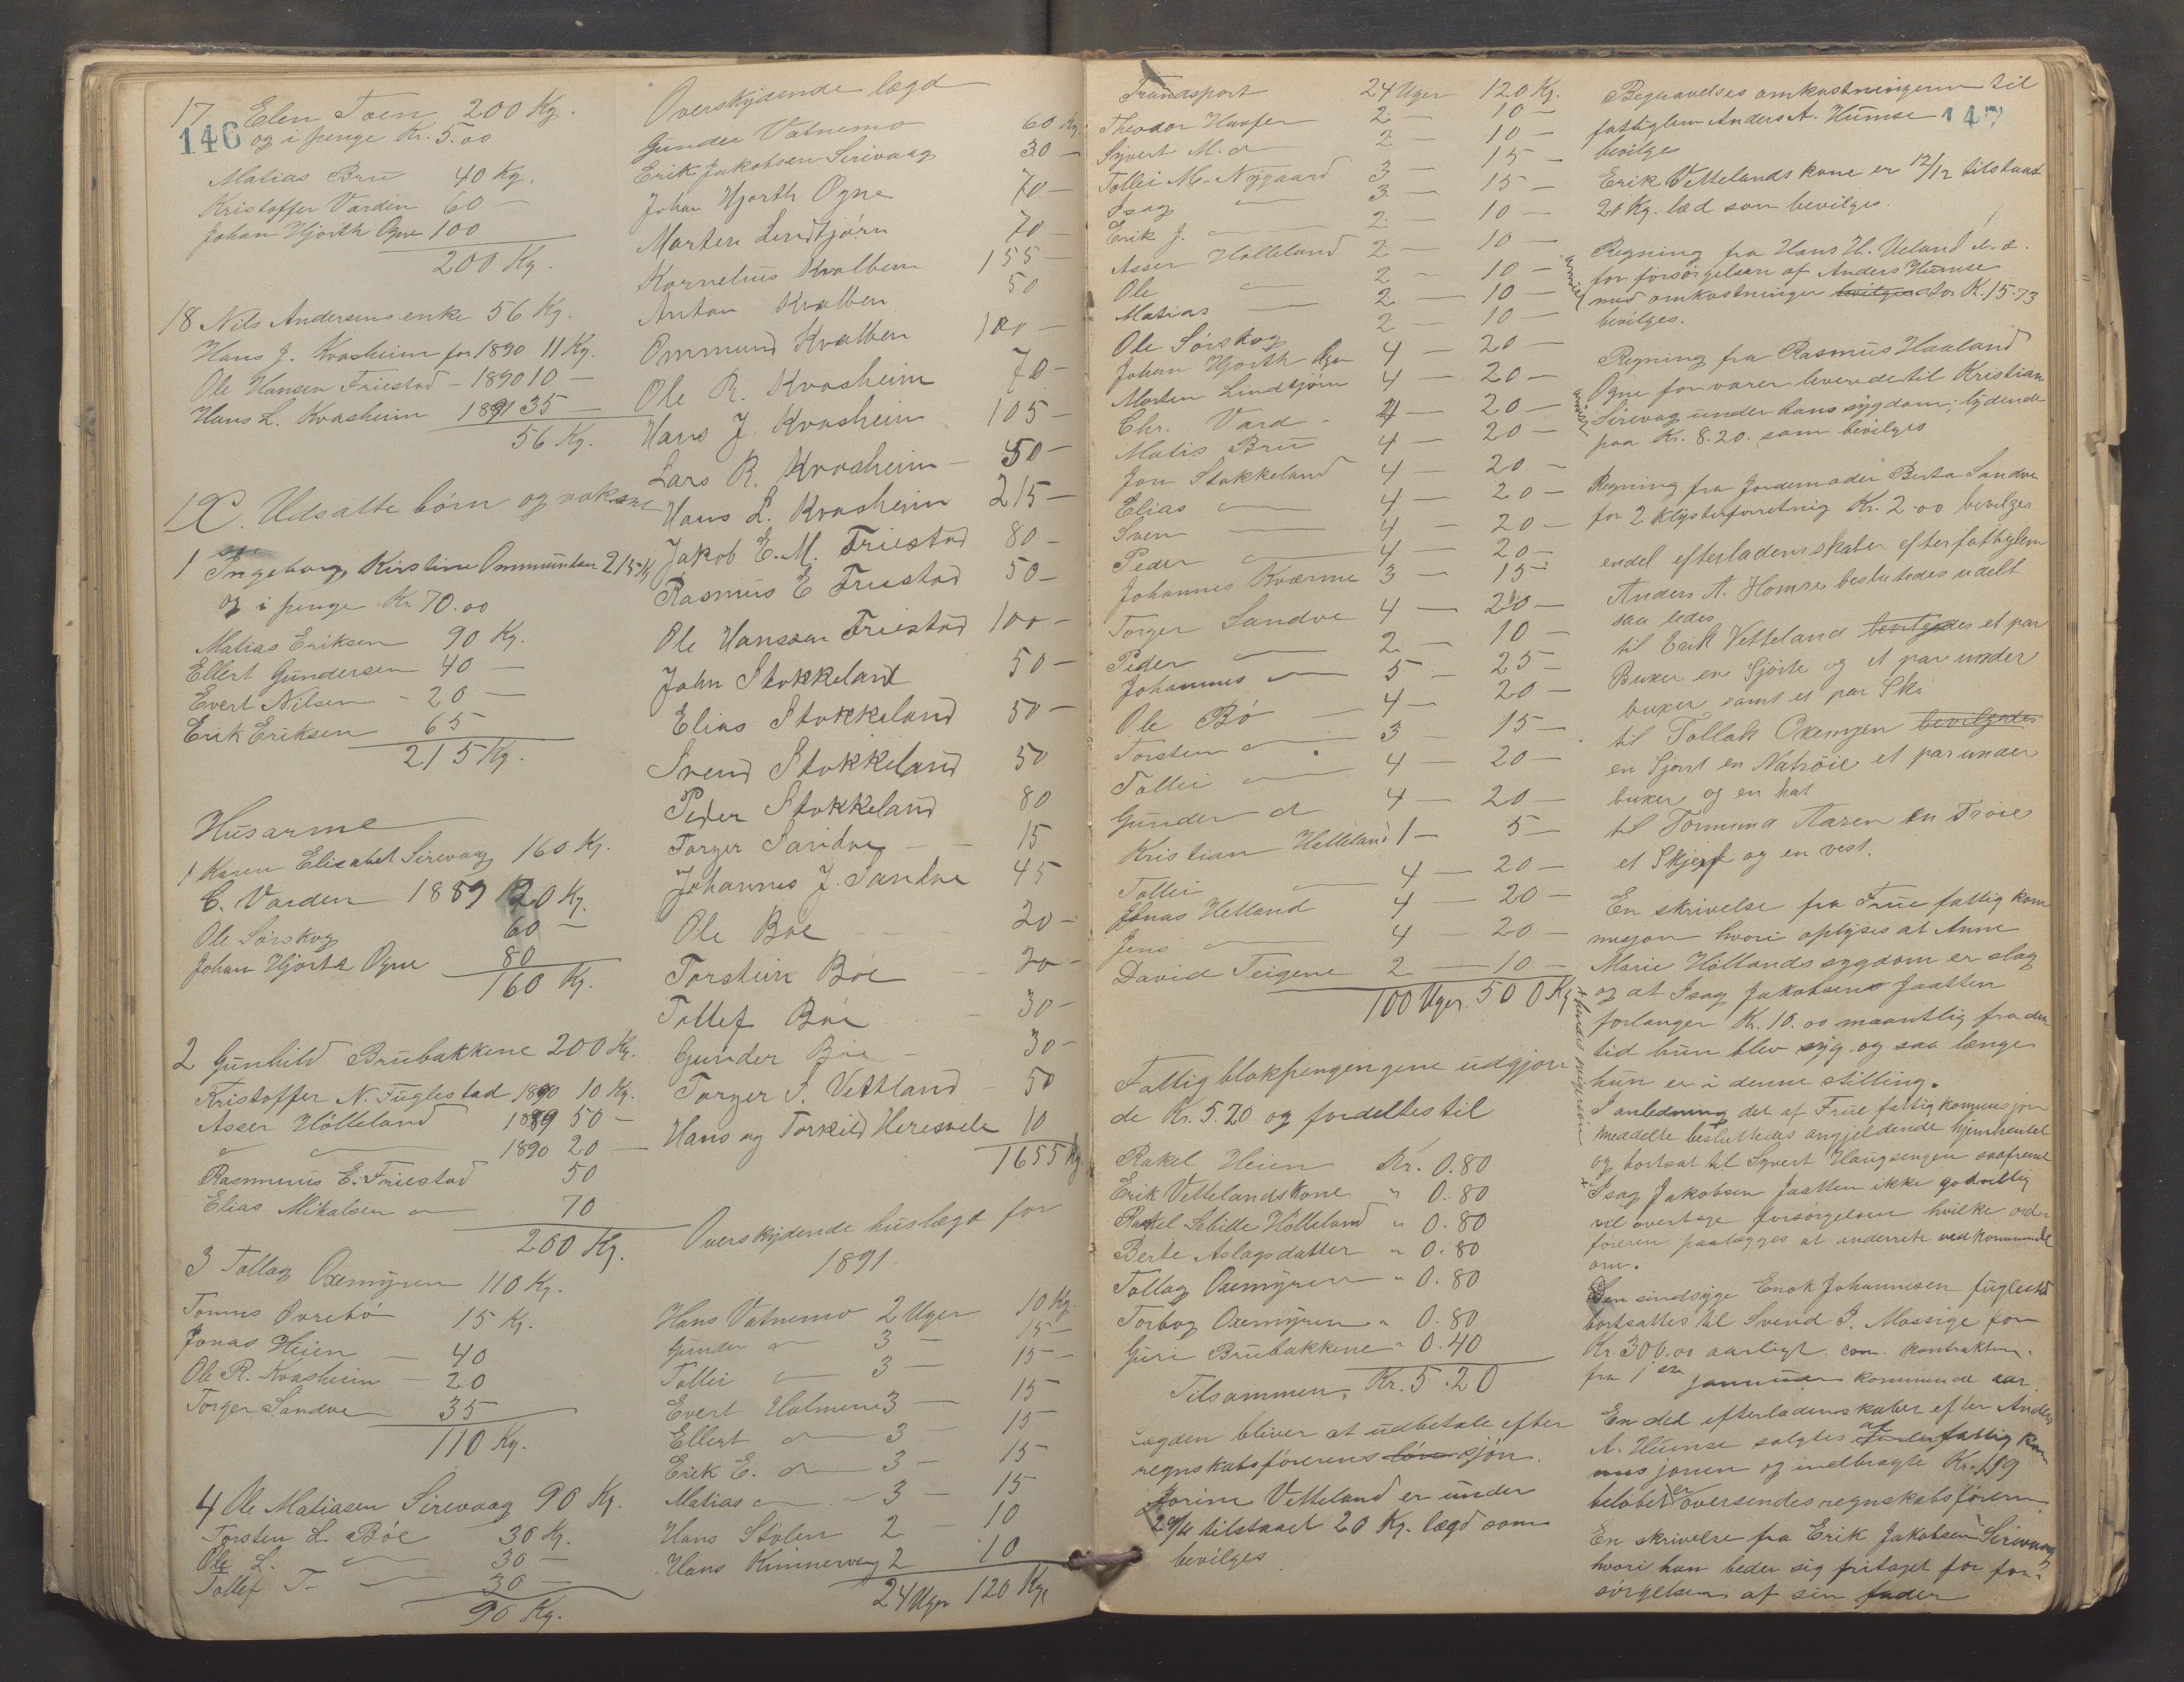 146
17 Elen Toen 200 Kg.
og i penge Kr. 5.00
Matias Bru 40 Kg.
Kristoffer Varden 60 —
Johan Hjorth Ogne 100
200 Kg.
18 Nils Andersens enke 56 Kg.
Hans J. Kvasheim for 1890 11 Kg.
Ole Hansen Friestad — 1890 10 —
Hans L. Kvasheim 1891 35 —
56 Kg.
Udsatte børn og voksne
1 Ingeborg Kirstine Ommundsen 215 Kg
og i penge Kr. 70.00
Matias Eriksen 90 Kg.
Ellert Gundersen 40 —
Evert Nilsen — 20 —
Erik Eriksen 65
215 Kg.
Husarme
1 Karen Elisabet Sirevaag 160 Kg.
C. Varden 1889 20 Kg.
Ole Sørskog 60 —
Johan Hjorth Ogne 80
160 Kg.
2 Gunhild Brubakkene 200 Kg.
Kristoffer N. Fuglestad 1890 10 Kg.
Asser Hölleland 1889 50 —
1890 20 —
Rasmus E. Friestad 50
Elias Mikalsen 70
200 Kg.
3 Tollag Oxemyren 110 Kg.
Tomas Ovrebø 15 Kg.
Jonas Heien — 40
Ole R. Kvasheim — 20
Torger Sandve 35
110 Kg.
4 Ole Matiasen Sirevaag 90 Kg.
Torsten L. Böe 30 Kg.
Ole L. — 30 —
Tollef T. — 30 —
90 Kg.
Overskydende lægd
Gunder Vatnemo 60 Kg
Erik Jakobsen Sirevaag 30 —
Johan Hjorth Ogne 70 —
Morten Lindtjørn 70 —
Kornelius Kvalben 155 —
Anton Kvalben 50
Ommund Kvalben 100 —
Ole R. Kvasheim 70 —
Hans J. Kvasheim 105 —
Lars R. Kvasheim — 50 —
Hans L. Kvasheim 215 —
Jakob E. M. Friestad 80 —
Rasmus E Friestad 50 —
Ole Hanssen Friestad 100 —
John Stokkeland 50 —
Elias Stokkeland 50 —
Svend Stokkeland 50
Peder Stokkeland 80
Torger Sandve — 15
Johannes J. Sandve 45
Ole Böe — 20 —
Torstein Böe — 20 —
Tollef Böe — 30 —
Gunder Böe — 30 —
Torger S. Vettland — 50
Hans og Torkild Heresvele 10
1655 Kg
Overskydende huslægd for
1891
Hans Vatnemo 2 Uger 10 Kg.
Gunder 3 — 15 —
Tollei 3 — 15 —
Evert Holmene 3 — 15
Ellert 3 — 15
Erik E. 3 — 15
Matias 3 — 15
Hans Stølen 2 — 10
Hans Kinnervag 2 10
24 Uger 120 Kg.
Transport 24 Uger 120 Kg.
Theodor 2 — 10 —
Sivert M. 2 — 10 —
Tollei M. Nygaard 3 — 15 —
Isag — 3 — 15 —
Erik J. — 2 — 10 —
Asser Hölleland 2 — 10 —
Ole — 2 — 10 —
Matias — 2 — 10 —
Ole Sørskog 2 — 10 —
Johan Hjorth Ogn 4 — 20 —
Morten Lindtjørn 4 — 20 —
Chr. Vard 4 — 20 —
Matis Bru 4 — 20 —
Jon Stokkeland 4 — 20 —
Elias — 4 — 20 —
Sven — 4 — 20 —
Peder — 4 — 20 —
Johannes Kværme 3 — 15 —
Torger Sandve 4 — 20 —
Peder — 2 — 10 —
Johannes — 5 — 25 —
Ole Bö — 4 — 20 —
Torsten 3 — 15 —
Tollei 4 — 20 —
Gunder 4 — 20 —
Kristian Hölleland 1 — 5 —
Tollei — 4 — 20 —
Jonas Helland 4 — 20 —
Jens — 4 — 20 —
David Teigene 2 — 10 —
100 Uger. 500 Kg
Fattigblokpengengene udgjor
de Kr. 5.20 og fordeltes til
Rakel Heien Kr. 0.80
Erik Vettelands kone " 0.80
Rakel Sebille Hölleland " 0.80
Berte Aslagsdatter " 0.80
Tollag Oxemyren " 0.80
Torbog Oxemyren " 0.80
Guri Brubakkene " 0.40
Tilsammen. Kr. 5.20
Lægden bliver at udbetale efter
regnskabsførerens skjøn.
Jorine Vetteland er under
tilstaaet 20 Kg. lægd som
bevilges
147
Begravelses omkostningerne til
fattiglem Anders A. Humse
bevilges
Erik Vettelands kone er 12/12 tilstaaet
20 Kg. læd som bevilges.
Regning fra Hans H. Ueland
for forsørgelsen af Anders Humse
med omkostninger bevilges stor Kr. 15.73
bevilges.
Regning fra Rasmus Haaland
Ogne for varer leverede til Kristian
Sirevag under hans sygdom; lydende
paa Kr. 8.20. som bevilges
Regning fra Jordemoder Berta Sandve
for 2 klysterforretnig Kr. 2.00 bevilges
endel efterladenskaber efter fattiglem
Anders A. Homse besluttedes udelt
saa ledes
til Erik Vetteland bevilgedes et par
Buxer en Sjorte og et par under
buxer samt et par Sko
til Tollak Oxemyren bevilgedes
en Sjort en Nattrøie et par under
buxer og en hat
til Tormund Aasen en Trøie
et Skjerf og en vest.
En skrivelse fra Frue fattig kom
misjon hvori oplyses at Anne
Marie Höllands sygdom er slag
og at Isag Jakobsens Jaatten
forlanger Kr. 10.00 maantlig fra den
tid hun blev syg og saa længe
hun er i denne stilling.
I anledning det af Frue fattigkommisjon
meddelte besluttedes angjeldende hjemhentet
og bortsat til Syvert Haugsengen saafremt
+ Isag Jakobsen Jaatten ikke godvillig
vil overtage forsørgelsen hvilke ord
føreren paalægges at underrette vedkommende
om.
Den sindsyge Enok Johannesen fuglestad
bortsattes til Svend S. Mossige for
Kr. 300.00 aarligt. kontrakten.
fra 1ste januar kommende aar
En del efterladenskaber efter Anders
A. Humse solgtes af fattig kom
misjonen og indbragte Kr. 1.89
beløbet er oversendes regnskabsføreren.
En skrivelse fra Erik Jakobsen Sirevaag
hvori han beder sig fritaget for for-
sørgelsen af sin fader